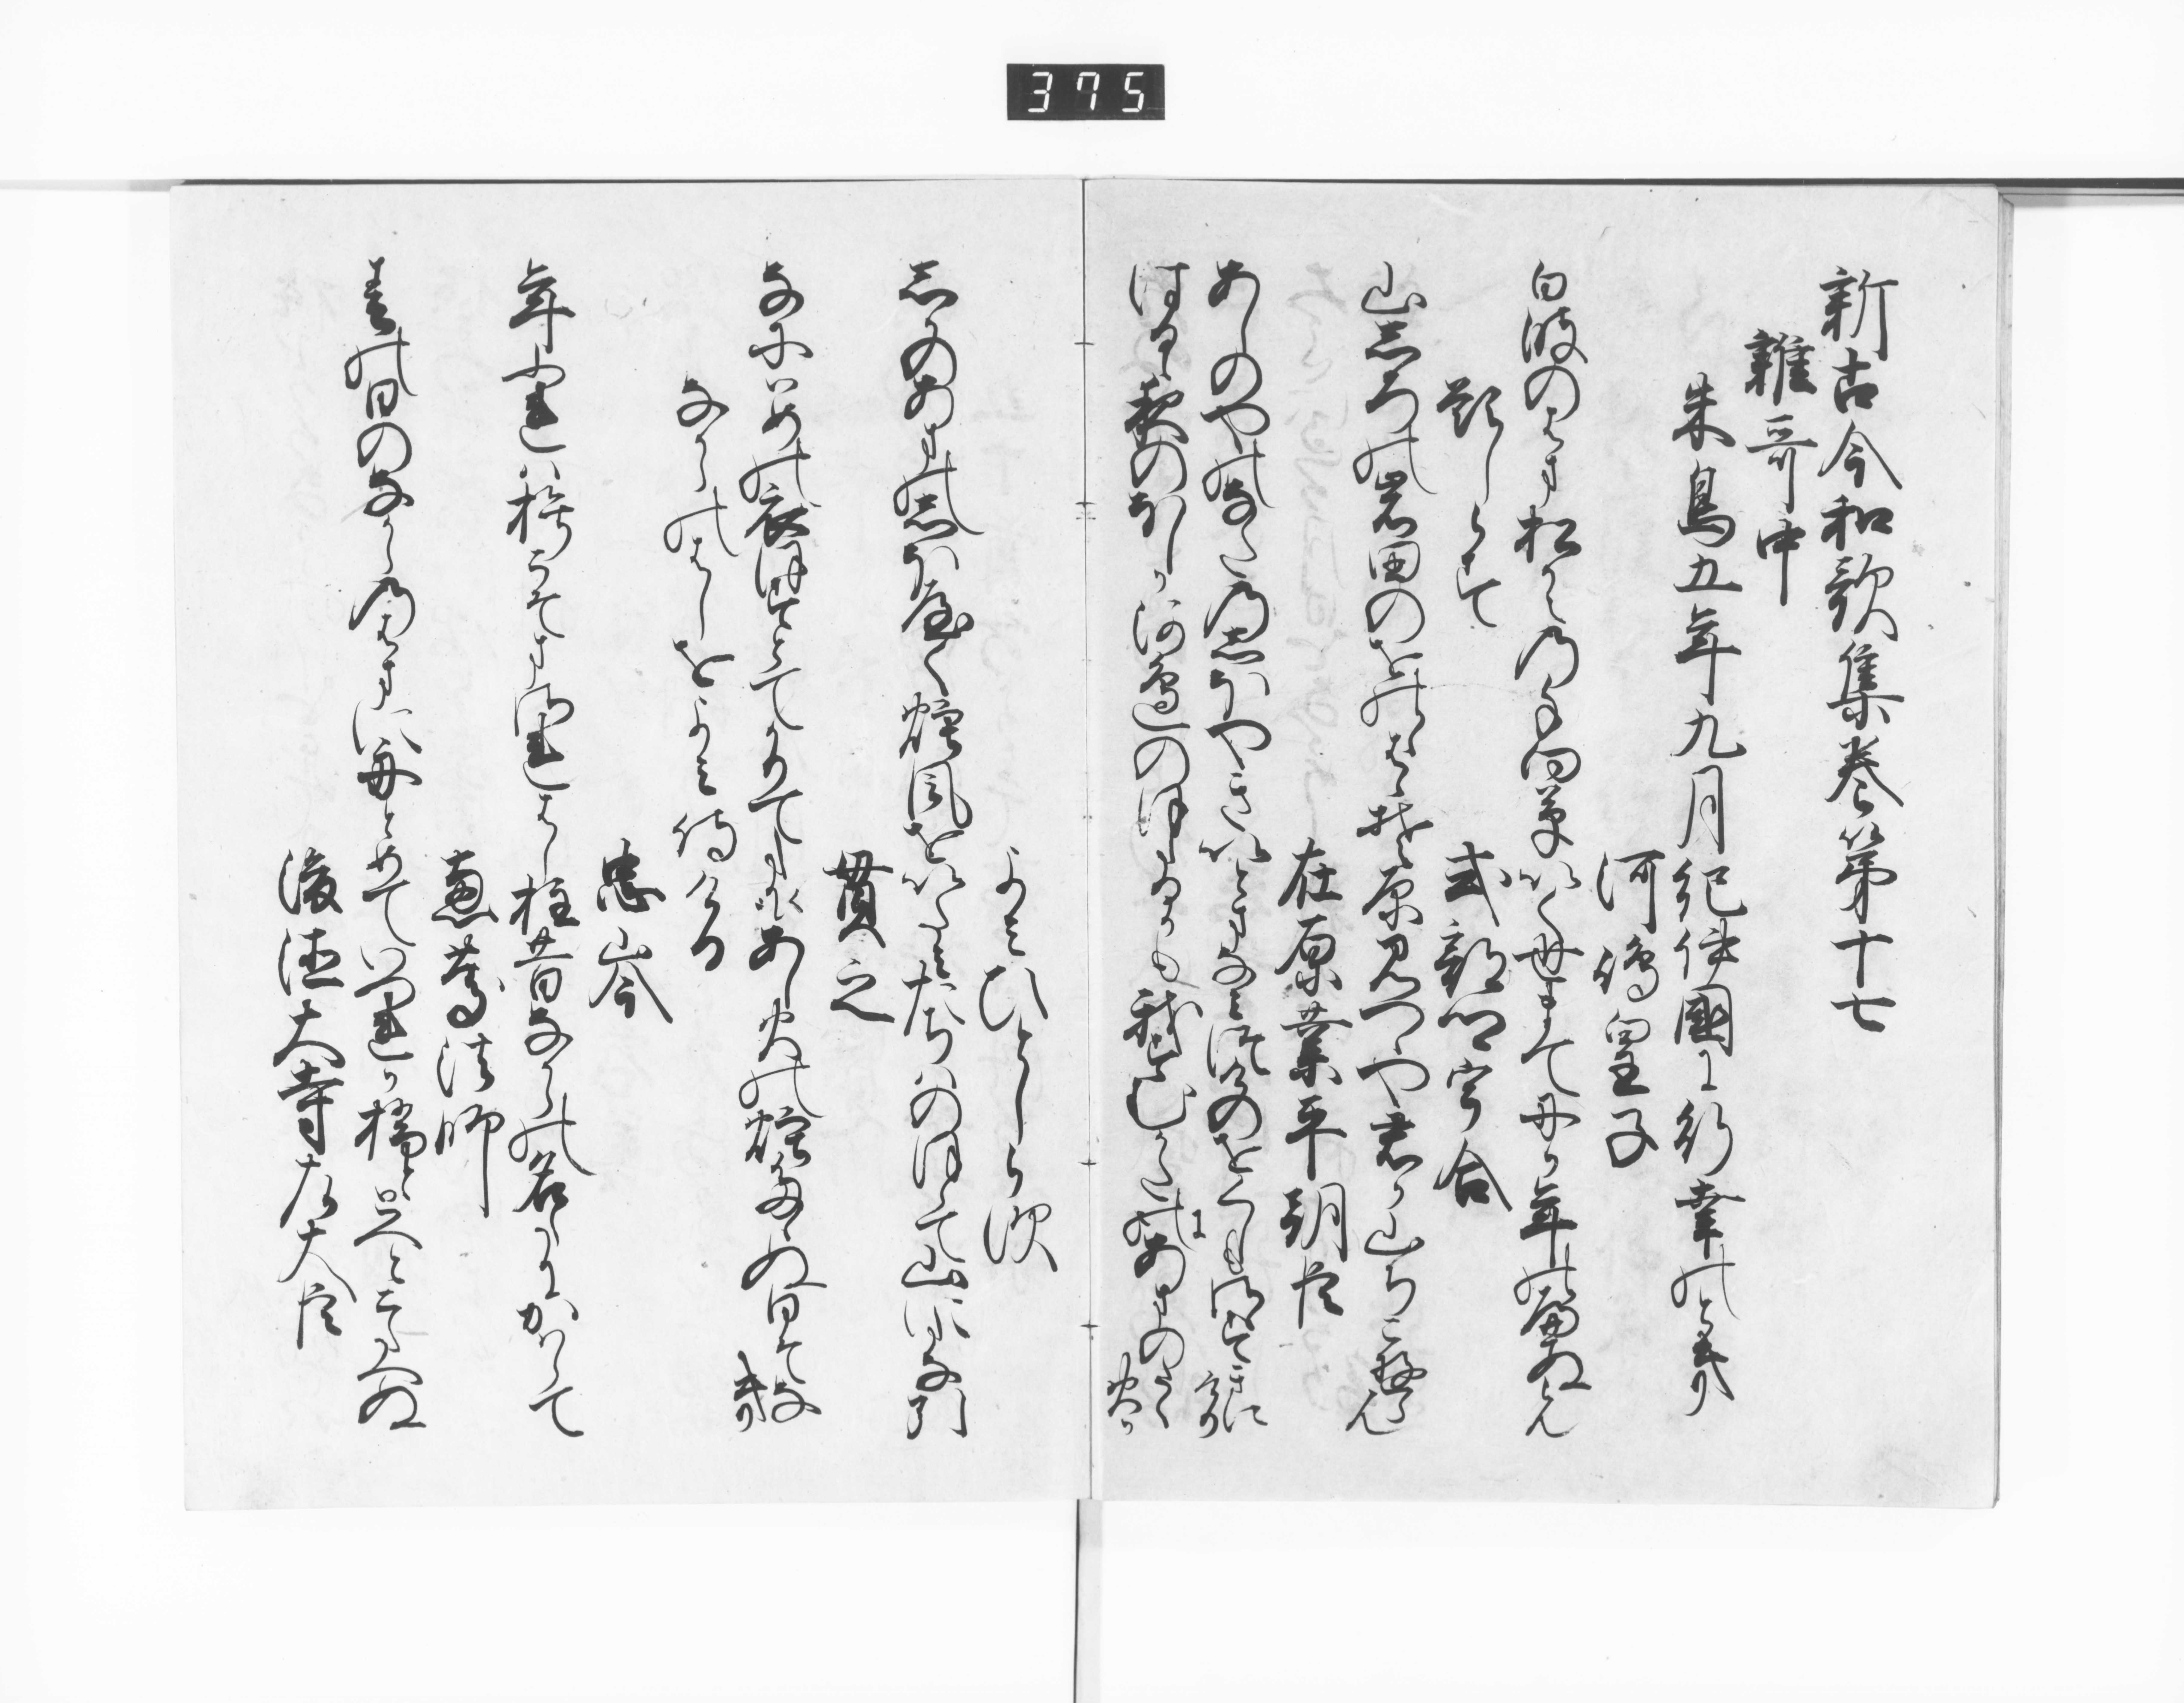 375
新古今和歌集巻第十七
雑哥中
朱鳥五年九月紀伊國に行幸の時
河嶋皇子
白波のはま松かえの手向草いく世まてにか年のへぬらん
題しらす
式部卿宇合
山しろの岩田のをのゝはゝそ原見つゝや君か山ちこゆらん
在原業平朝臣
あしのやのなたのしほやきいとまなみつけのをくしもさゝすきにけり
はるゝ夜のほしか河邊のほたるかも我すむかたのあまのたく火か
よみひとしらす
しかのあまのしほやく煙風をいたみたちはのほらて山にたな引
貫之
なにはめの衣ほすとてかりてたくあし火の煙たゝぬ日そなき
なからのはしをよみ侍ける
忠岑
年ふれは朽こそまされはし柱昔なからの名たにかはらて
恵慶法師
春の日のなからのはまに舟とめていつれか橋ととへとこたへぬ
後徳大寺左大臣